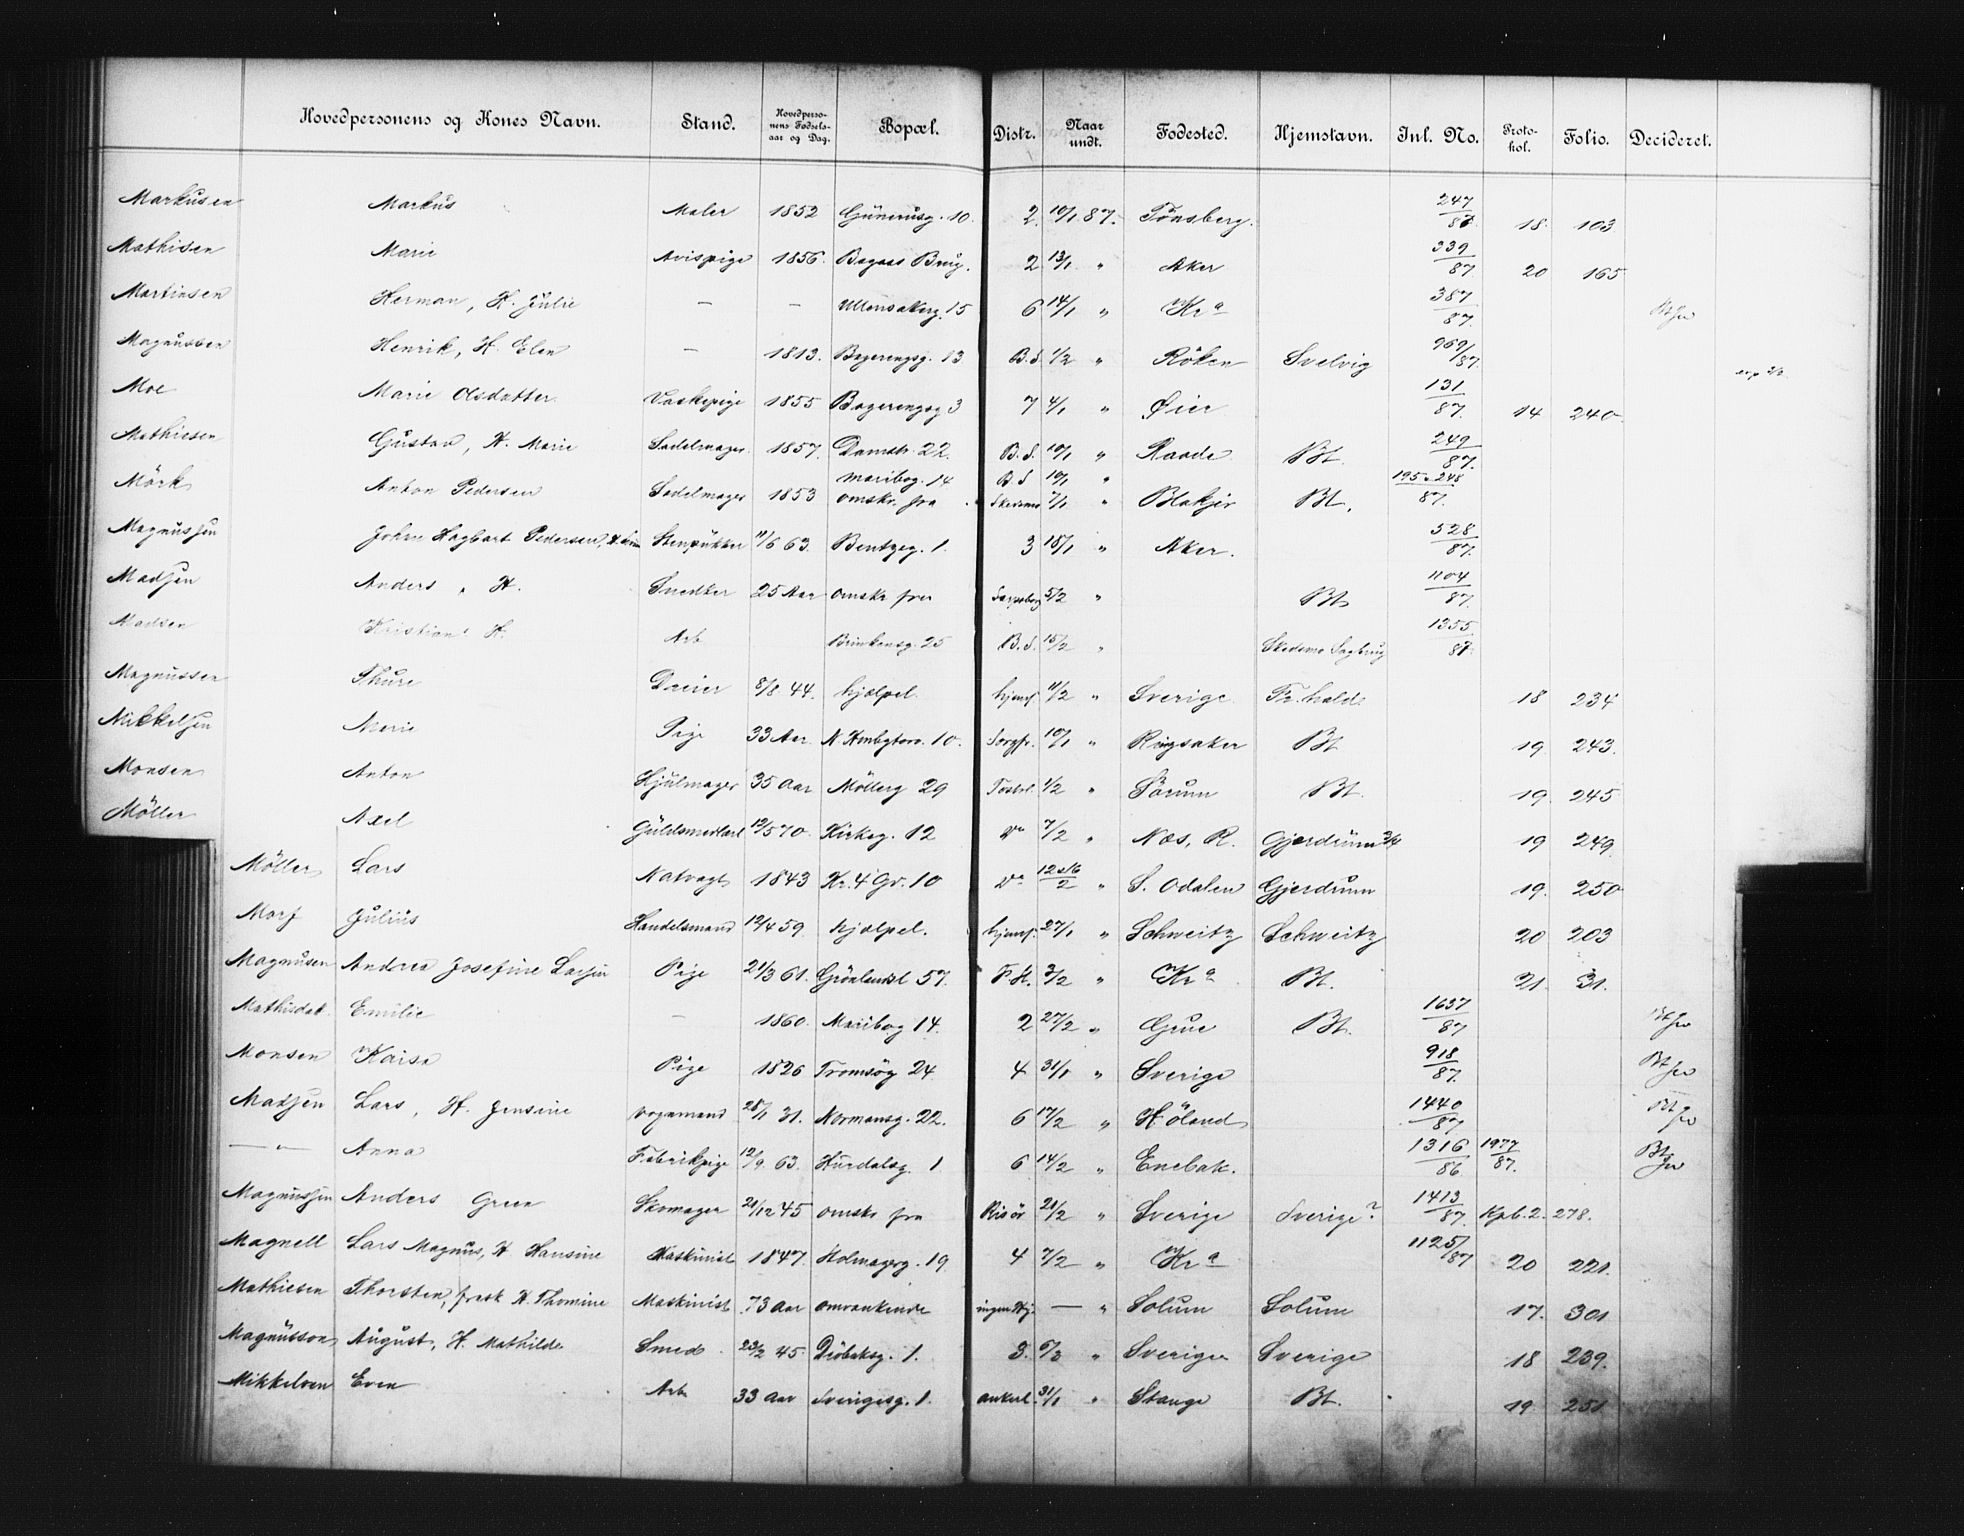 Hovedpersonens og Kones Navn. Stand. Hovedpersonens Fødselsaar og Dag. Bopæl. Distr. Naar undt. Fødested. Hjemstavn. Inl. No. Protokol. Folio. Decideret.
Markusen Markus Maler 1852 10. 2 10/1 87. Tönsberg. 247/87 18 103
Mathisen Marie Avispige 1856. Brug. 2 13/1 " Aker 339/87 20 165
Martinsen Herman, H. Julie — — Ullensakerg. 15 6 14/1 " Kra 387/87.
Magnussen Henrik, H. Elen — 1813. 13 B.S. 1/2 " Röken Svelvig 969/87.
Moe Marie Olsdatter Vaskepige 1855 3 7 4/1 " Øier 131/87. 14 240
Mathiesen Gustav, H. Marie Sadelmager 1857. Damstr. 22. B.S. 10/1 " Raade Bt. 249/87.
Mörk Anton Pedersen Sadelmager 1853 Maribog. 14 omskr. fra B.S 10/1 " Skedsmo 7/1 " Blakjer Bt. 248/87.
Magnussen Johan Hagbart Pedersen, Stenpukker 11/6 63. Bentzeg. 1. 3 18/1 " Aker. 528/87.
Madsen Anders, H. Snedker 25 Aar omskr fra Sarpsborg 5/2 " Bt 1104/87.
Madsen Kristian H. Arb Brinkensg. 25 B.S. 15/2 " Skedsmo Sagbrug 1355/87.
Magnussen Thure Dreier 8/8 44. hjælpel. hjemf. 11/2 " Sverige Fr.hald 18 234
Mikkelsen Marie Pige 33 Aar 10. 10/1 " Ringsaker Bt 19. 243.
Monsen Anton Hjulmager 35 Aar Möllerg 29 1/2 " Sörum Bt. 19. 245
Möller Axel 12/5 70. Kirkeg. 12 7/2 " Næs, R. Gjerdrum 19 249.
Möller Lars Natvagt 1843 Kr. 4 Gd. 10 12 & 16/2 " S. Odalen Gjerdrum 19. 250
Morf Julius Handelsmand 12/4 59. hjælpel. hjemf. 27/1 " Schweitz Schweitz 20 203
Magnusen Andrea Josefine Larsen Pige 21/3 61. Grönlandsl 57. F.H. 3/2 " Kra Bt. 21. 31.
Mathisdat. Emilie — 1860. Maribog 14. 2 27/2 " Grue Bt. 1637/87
Monsen Kaisa Pige 1826 Tromsög 24. 4 31/1 " Sverige 918/87.
Madsen Lars, H. Jensine Vognmand 28/1 31. Normansg. 22. 6 17/2 " Höland 1440/87
— " — Anna Fabrikpige 12/9 63. Hurdalsg. 1 6 14/2 " Enebak. 1316/86 1977/87.
Magnussen Anders Green Skomager 21/12 45 omskr fra Risör 21/2 " Sverige Sverige? 1413/87. Kpb. 2. 278.
Magnell Lars Magnus, H Hansine Maskinist 1847. Holmagerg. 19. 4 7/2 " Kra 1125/87 20 221.
Mathiesen Thorsten, H. Thomine Maskinist 73 Aar omvankende — " Solum Solum 17. 301
Magnusson August, H. Mathilde Smed 23/2 45. Dröbaksg. 1. 3. 5/3 " Sverige Sverige 18 239.
Mikkelsen Even Arb 33 Aar Sverigesg. 1. ankerl. 31/1 " Stange Bt. 19 251